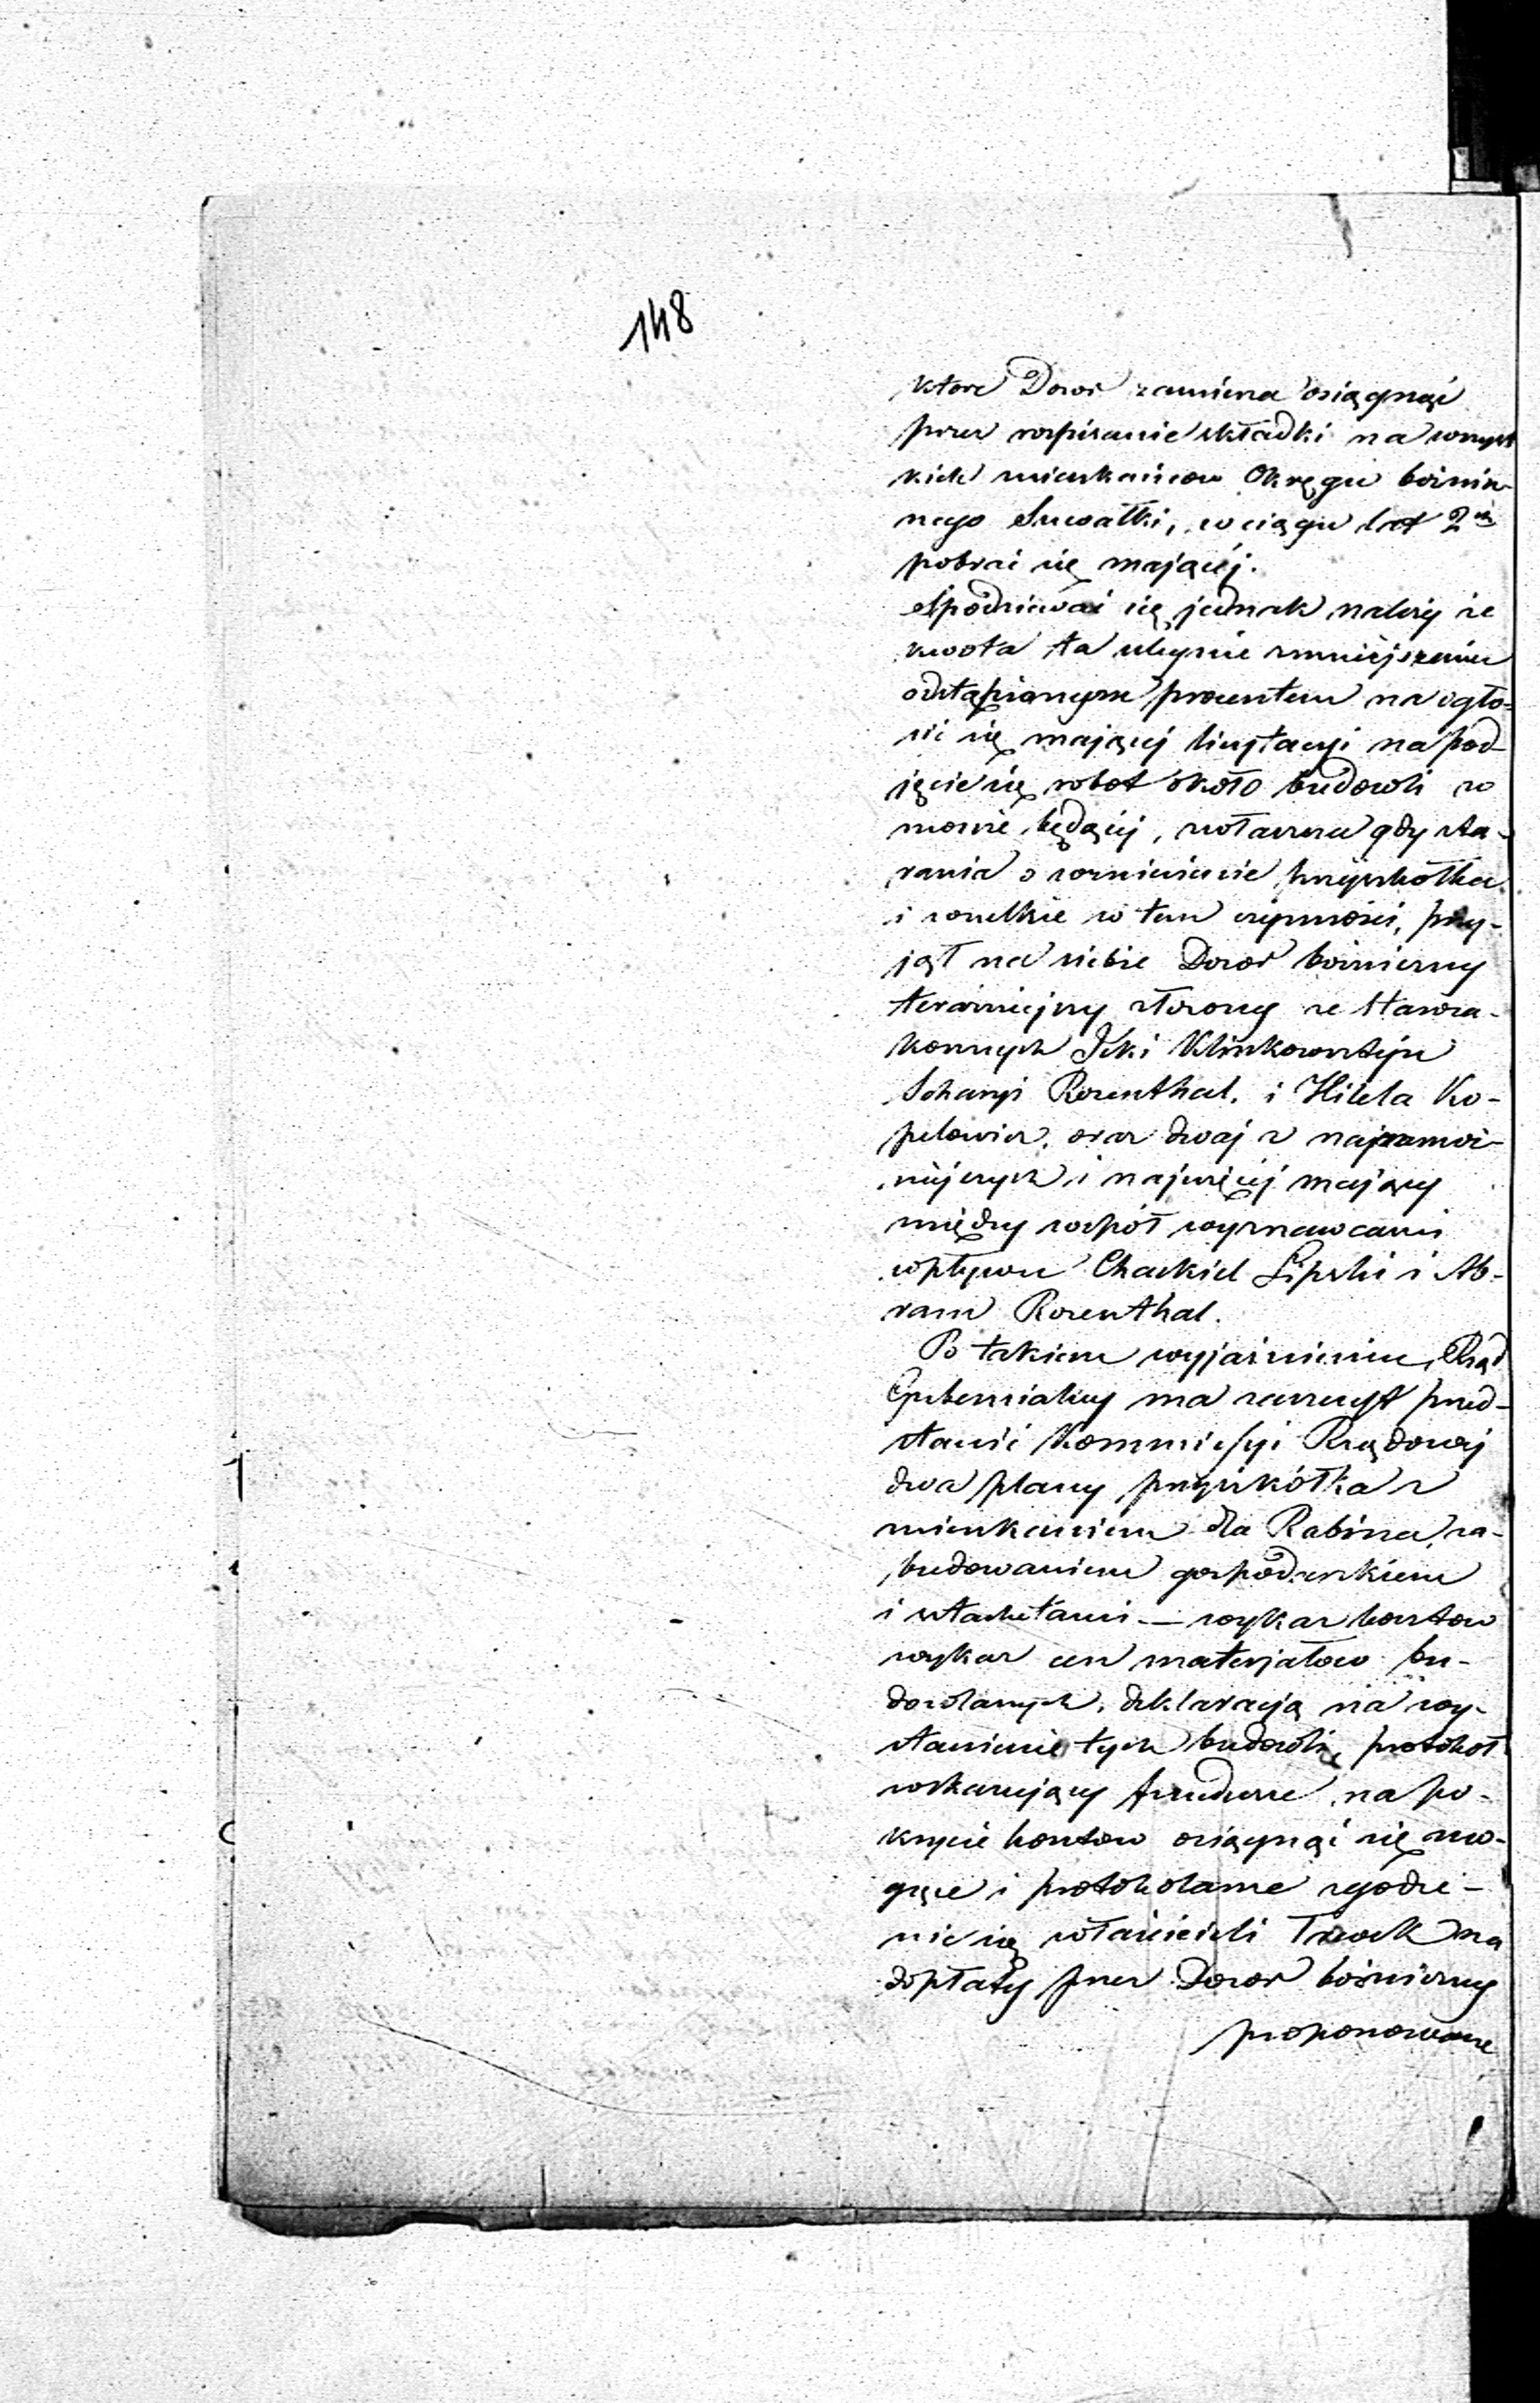 148
które Dozór zamierza osiągnąć
przez rozpisanie składki na wszyst
kich mieszkańców Okręgu bóżnicz-
nego Suwałki, w ciągu lat 2ch
pobrać się mającej.
Spodziewać się jednak należy że
kwota ta ulegnie zmniejszeniu
odstąpionym procentem na ogło-
sić się mającej licytacyi na pod-
jęcie się robot około budowli w
mowie będącej, zwłaszcza gdy sta-
rania o wzniesienie przyszkółka
i wszelkie w tem czynności, przy-
jął na siebie Dozór bóżniczny
teraźniejszy złożony ze Staroza-
konnych Icki Klinkowsztejn
Sohanji Rozenthal. i Hilela Ko-
pelowicz, oraz dwaj z najzamoż-
niejszych i najwięcej mający
między współ wyznawcami
wpływu Chackiel Lipski i Ab-
ram Rozenthal.
Po takiem wyjaśnieniu, Rząd
Gubernialny ma zaszczyt przed-
stawić Kommissyi Rządowej
dwa plany przyszkółka z
mieszkaniem dla Rabina, za-
budowaniem gospodarskiem
i sztachetami — wykaz kosztów
wykaz cen materjałów bu-
dowlanych, deklaracją na wy-
stawienie tych budowli, protokół
wskazujący fundusze na po-
krycie kosztów osiągnąć się mo-
gące i protokolarne zgodze-
nie się właścicieli ławek na
dopłaty przez Dozór bóżniczny
proponowane